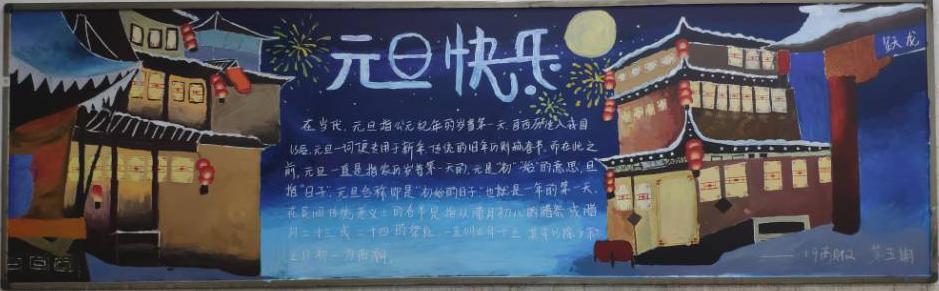 元旦快乐
跃龙
在当代,元旦指公元纪年的岁首第一天。自西历传入我国
以后,元旦一词便专用于新年,传统的旧年历则称春节,而在此之
前,元旦一直是指农历岁首第一天的。元是"初""始"的意思,旦
指"日子",元旦合称即是"初始的日子"也就是一年的第一天。
在民间传统意义上的春节是指从腊月初八的腊祭或腊
月二十三或二十四的祭灶,一直到正月十五,其中以除夕和
正月初一为高潮。
第五期